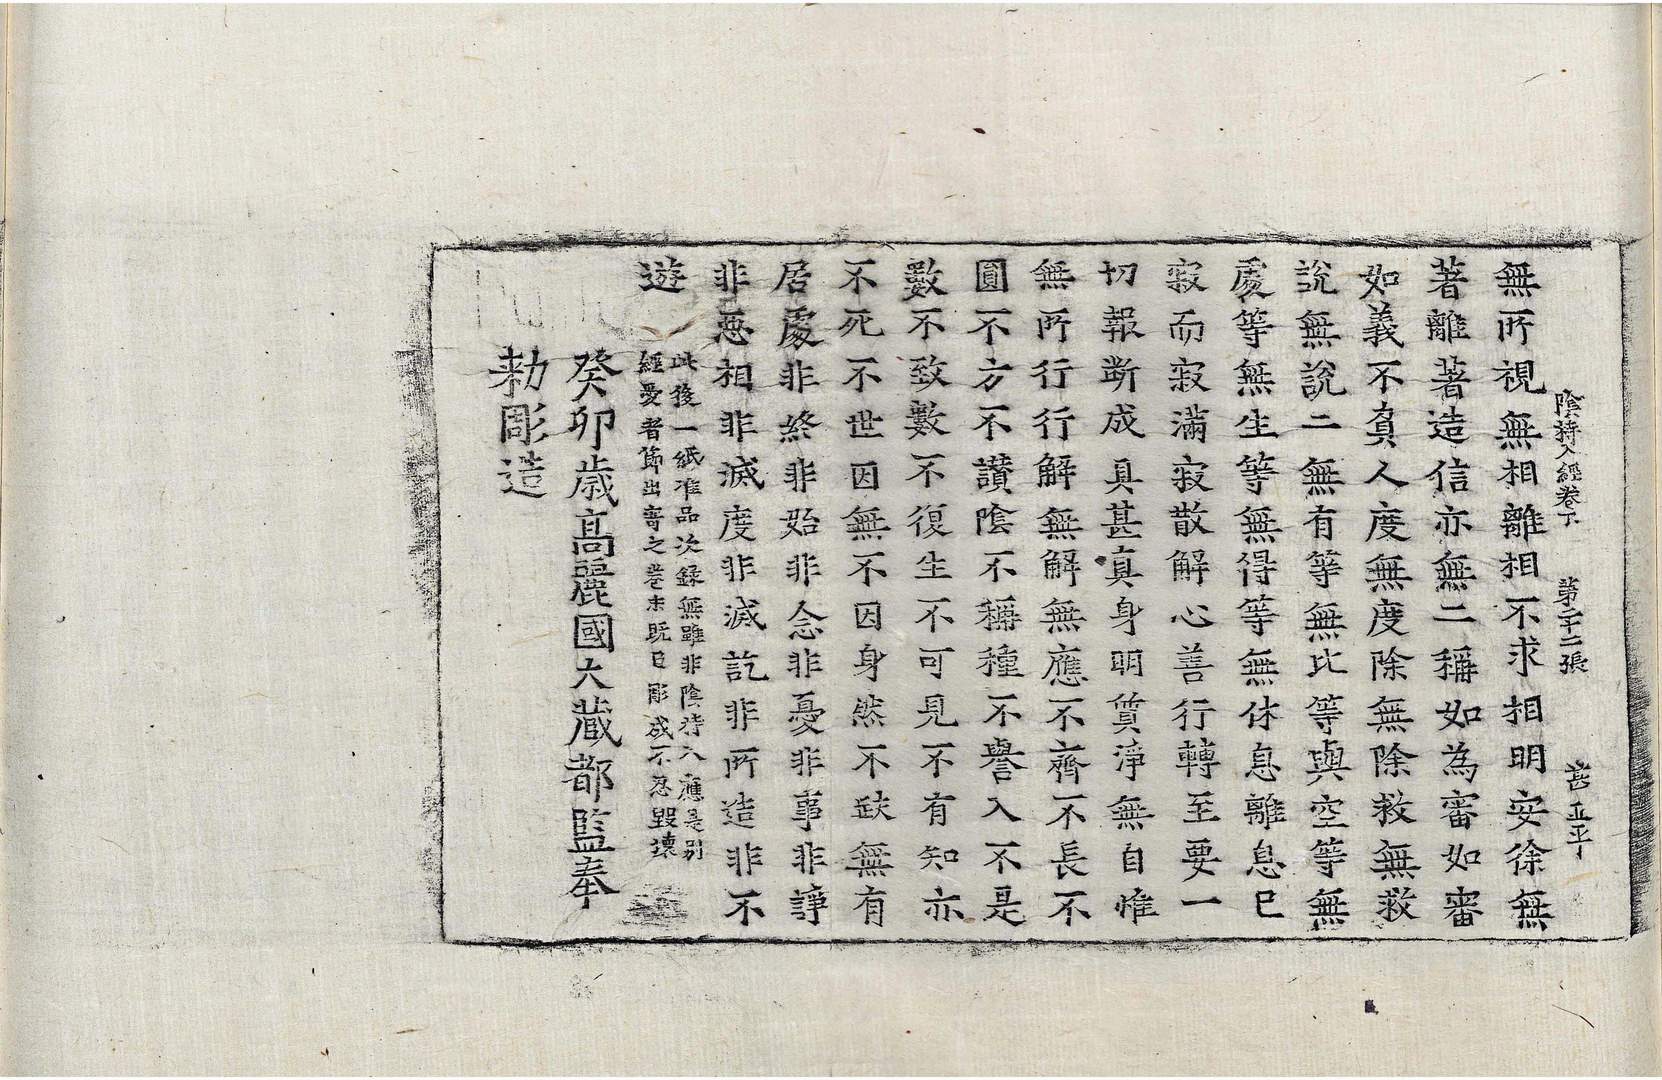 陰持入經卷下　第二十二張　甚　正平
無所視無相離相不求相明安徐無
著離著造信亦無二稱如為審如審
如義不真人度無度除無除救無救
說無說二無有等無比等與空等無
處等無生等無得等無休息離息已
寂而寂滿寂散解心善行轉至要一
切報斷成具甚真身明質淨無自惟
無所行行解無解無應不齊不長不
圓不方不讚陰不稱種不譽入不是
數不致數不復生不可見不有知亦
不死不世因無不因身然不缺無有
居處非終非始非念非憂非事非諍
非惡相非滅度非滅訖非所造非不
遊
此後一紙准品次錄無雖非陰持入應是別
經憂者節出寄之卷末既曰彫成不忍毀壞
癸卯歳高麗國大藏都監奉
勑彫造